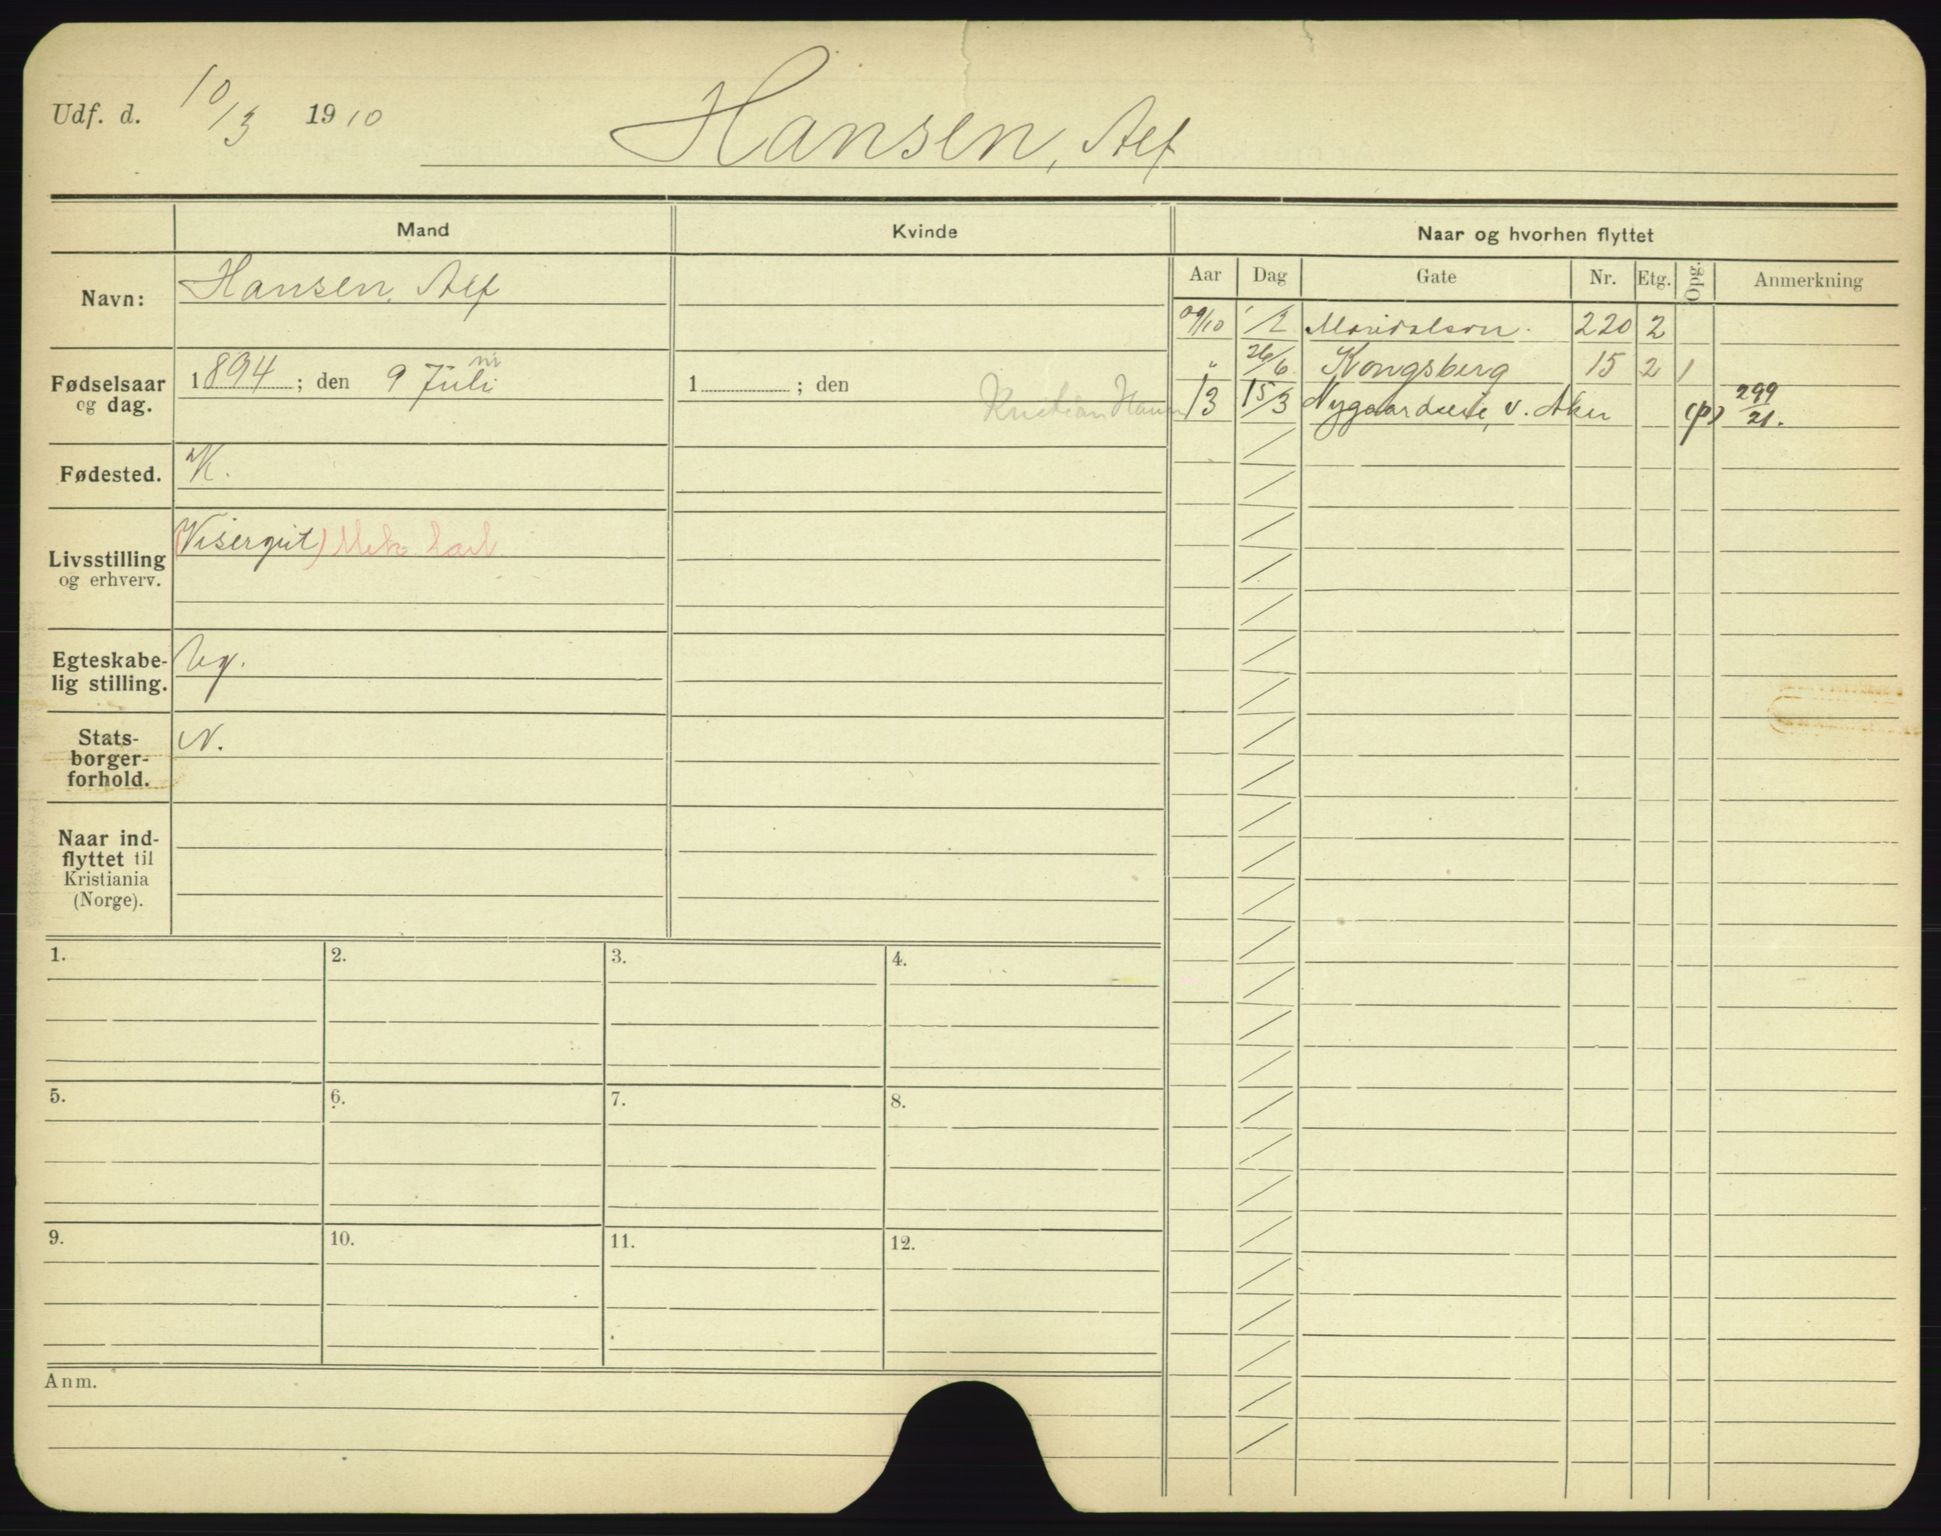 Udf. d. 10/3 1910 Hansen, Alf
Mand Kvinde Naar og hvorhen flyttet
Aar Dag Gate Nr. Etg. Opg. Anmerkning
Navn: Hansen, Alf
09/10 1/2 Maridalsvn. 220 2
" 26/6 Kongsberg 15 2 1
13 15/3 v. Aker (p) 299/21.
Fødselsaar og dag. 1894; den 9 Juli 1 ; den
Kristian
Fødested. K.
Livsstilling og erhverv. (Visergut)
Egteskabe-
lig stilling. Ug.
Stats-
borger-
forhold. N.
Naar ind-
flyttet til
Kristiania
(Norge).
1. 2. 3. 4.
5. 6. 7. 8.
9. 10. 11. 12.
Anm.